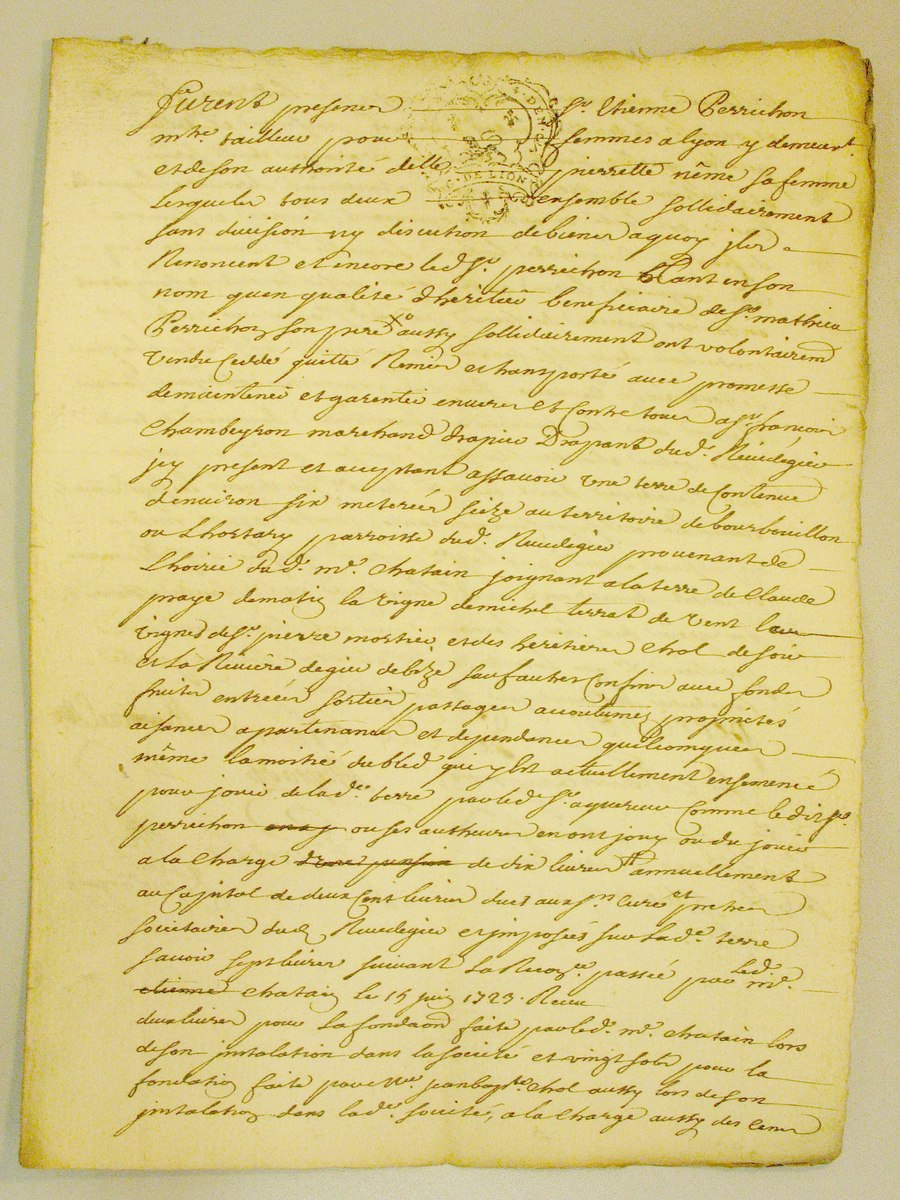 furent presents Sr. Etienne Perrichon
mtre tailleur pour femmes a lyon y demeurt.
et de son authorité delle pierrette nême sa femme
DE LION
Lesquels tous deux ensemble sollidairement
sans division ny discution de biens a quoy jls
Renoncent et encore led. Sr. perrichon tant en son
nom quen qualité dheritié beneficiaire de Sr. mathieu
Perrichon son pere Xo aussy sollidairement ont volontairemt
Vendu Ceddé quitté Remis et transporté avec promesse
de maintenir et garentir envers et Contre tous a Sr. françois
Chambeyron marchand drapier Drapant dud. Rivedegier
jcy present et acceptant assavoir Une terre de Contenue
denviron six meterées size au territoire de bourbouillon
ou Lhortary parroisse dud. Rivedegier provenant de
Lhoirie dud. mr. Chatain joignant a la terre de Claude
praye de matin la Vigne de michel terrat de Vent les
Vignes de Sr. pierre mortier et des heritiers Chol de soir
et la Riviere de gier de bize sauf autres Confins avec fonds
fruits entrées sorties passages accoutumez proprietés
aisances apartenances et dependances quelconques
même la moitié du bled qui y est actuellement ensemencé
pour jouir de lade. terre par led. Sr. aquereur Comme led. Sr.
perrichon ou ses autheurs en ont jouy ou du jouir
a la Charge dune pension de dix livres annuellement
au Capital de deux Cent livres dues aux Srs. Cures et pretres
societaires dud. Rivedegier et jmposés sur lade. terre
savoir sept livres suivant la Recoce. passée par led. mr.
etienne Chatain le 15 juin 1723. Reçue
deux livres pour la fondaon faite par led. mr. Chatain lors
de son jnstalation dans la societé et vingt sols pour la
fondation faite par mre. jean bapte. Chol aussy lors de son
jnstalation dans lade. societé, a la Charge aussy des Cens